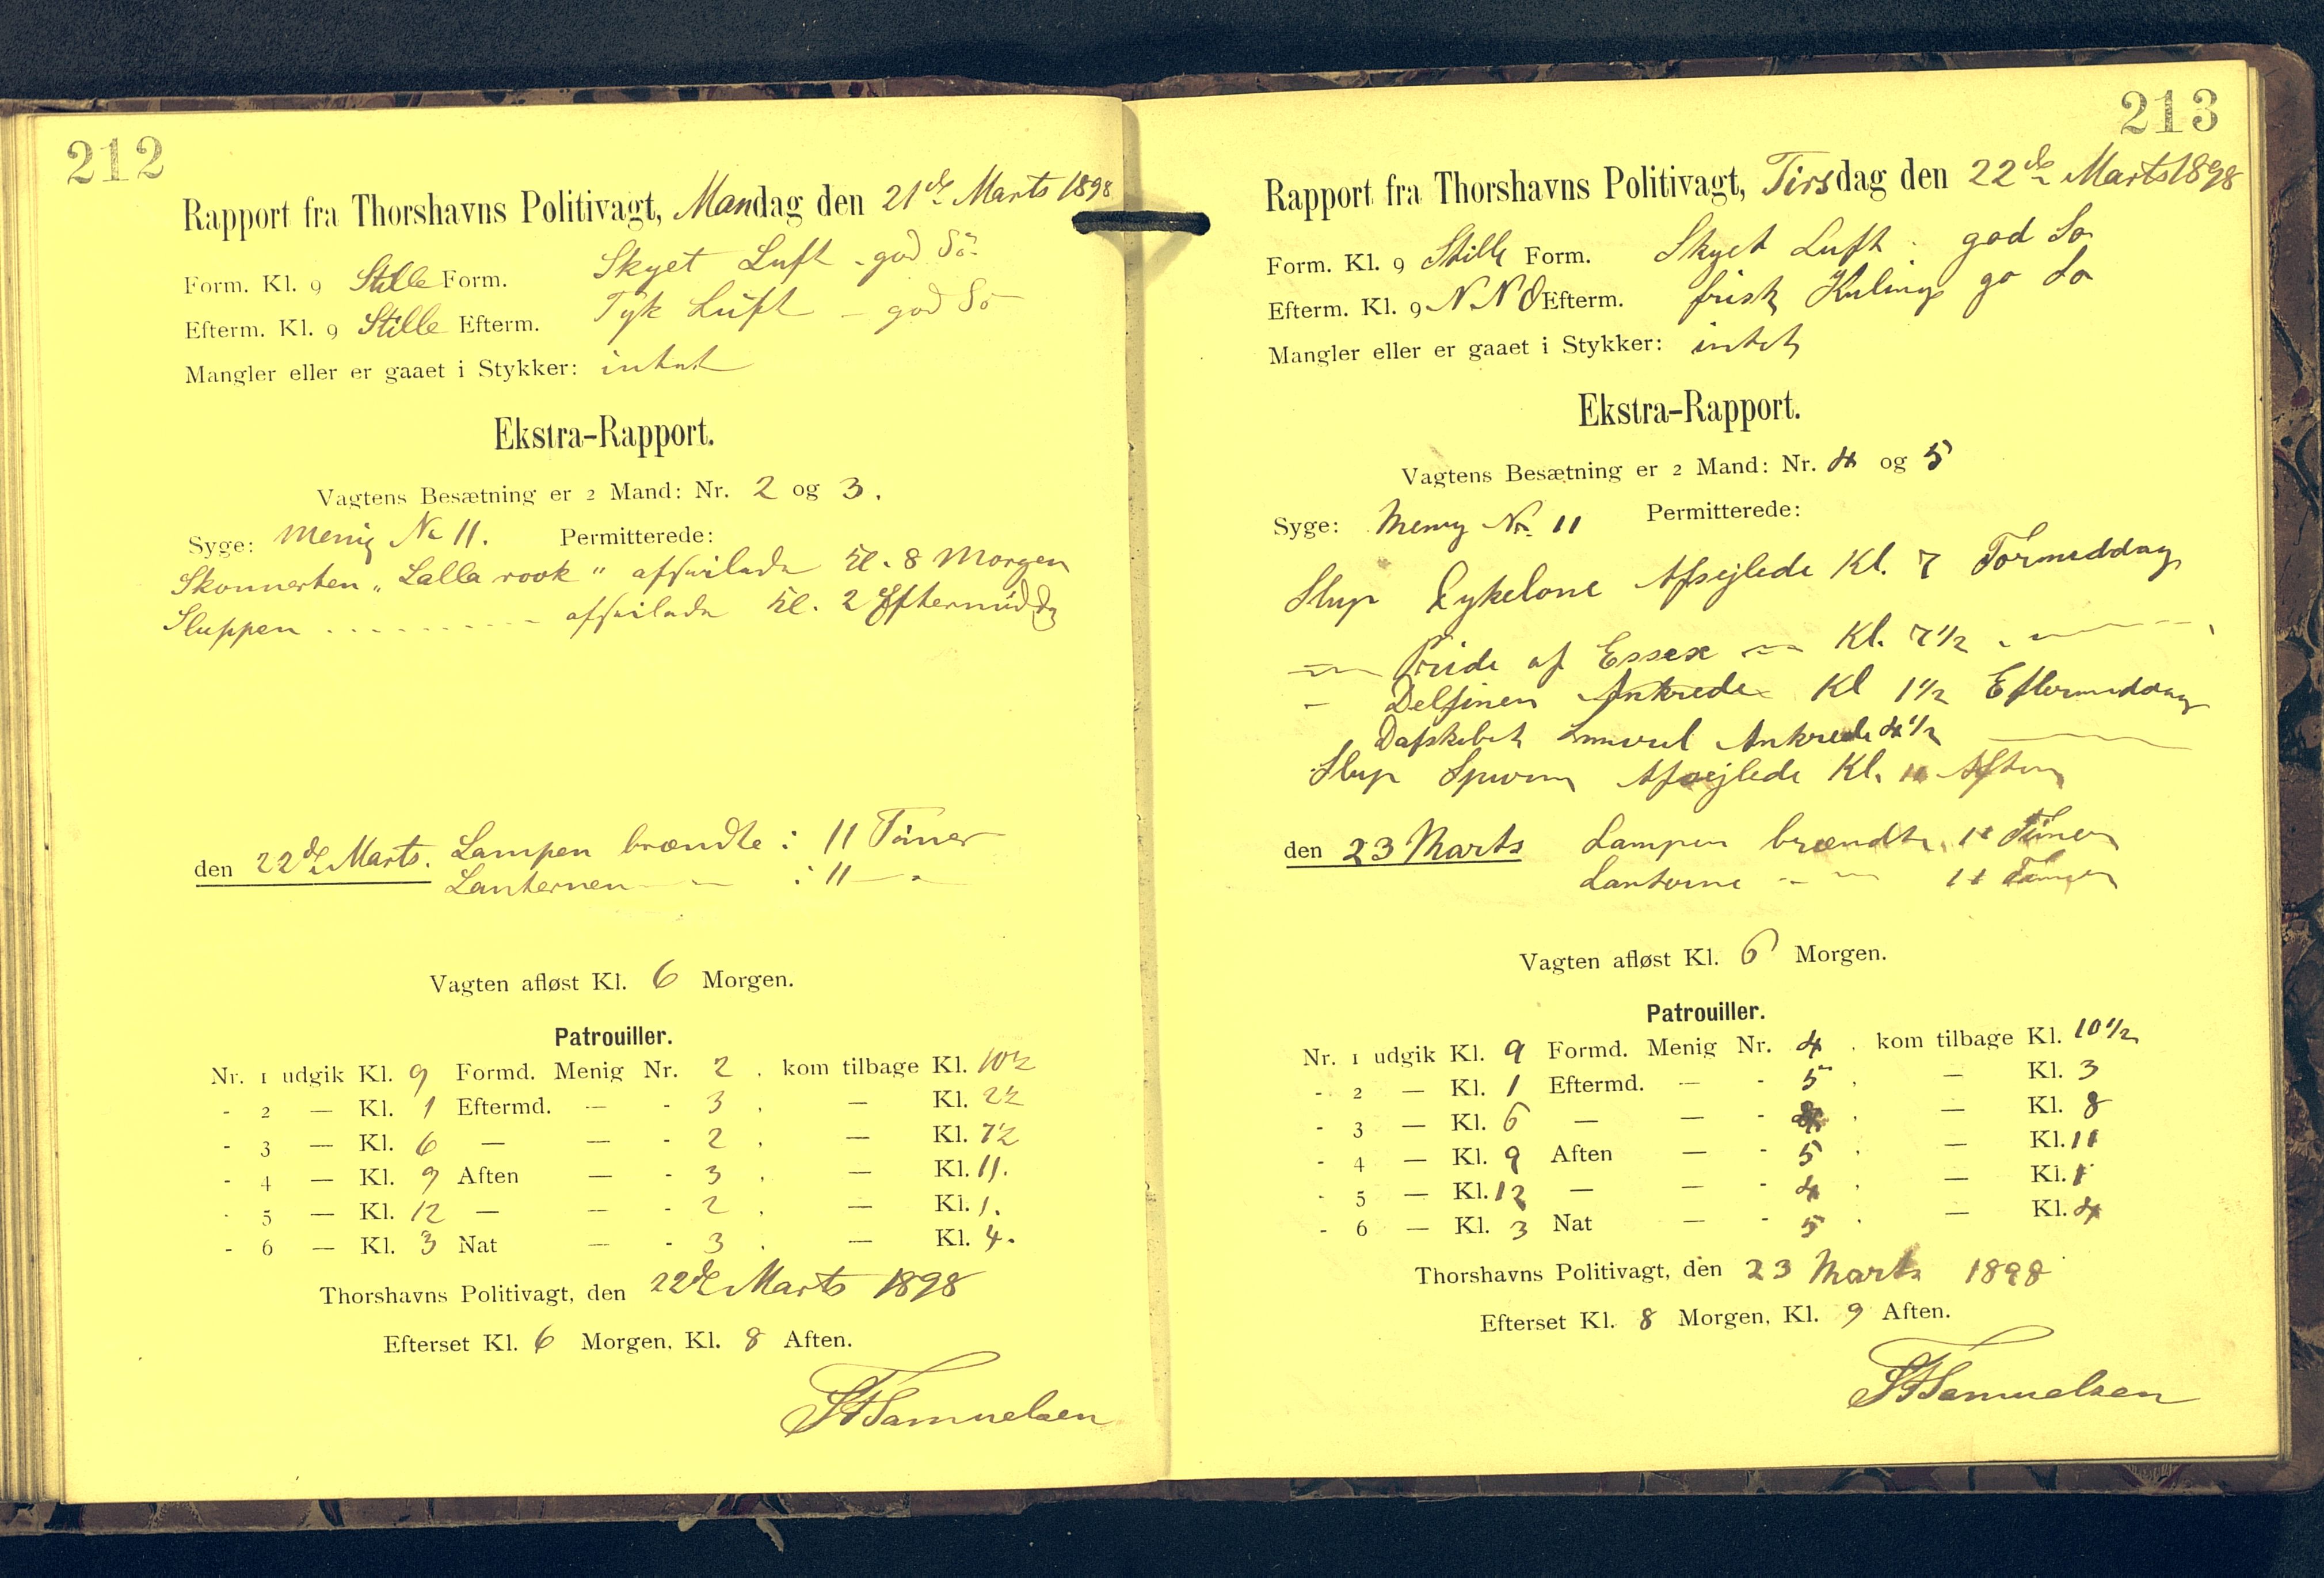 212
Rapport fra Thorshavns Politivagt, Mandag den 21de Marts 1898
Form. Kl. 9 Stille Form. Skyet Luft - god Sö
Efterm. Kl. 9 Stille Efterm. Tyk Luft - god Sö
Mangler eller er gaaet i Stykker: intet
Ekstra-Rapport.
Vagtens Besætning er 2 Mand: Nr. 2 og 3.
Syge: Menig No 11. Permitterede:
Skonnerten „Lalla rook" afseilede Kl. 8 Morgen
Sluppen .......... afseilede Kl. 2 Eftermiddg
den 22de Marts. Lampen brændte : 11 Timer
Lanternen — — : 11 — "
Vagten afløst Kl. 6 Morgen.
Patrouiller.
Nr. 1 udgik Kl. 9 Formd. Menig Nr. 2 . kom tilbage Kl. 10½
- 2 — Kl. 1 Eftermd. — - 3 . — Kl. 2½
- 3 — Kl. 6 — — - 2 . — Kl. 7½
- 4 — Kl. 9 Aften — - 3 . — Kl. 11.
- 5 — Kl. 12 — — - 2 . — Kl. 1.
- 6 — Kl. 3 Nat — - 3 . — Kl. 4.
Thorshavns Politivagt, den 22de Marts 1898
Efterset Kl. 6 Morgen, Kl. 8 Aften.
Samuelsen
213
Rapport fra Thorshavns Politivagt, Tirsdag den 22de Marts 1898
Form. Kl. 9 Stille Form. Skyet Luft . god So
Efterm. Kl. 9 N.N.O Efterm. frisk Kuling go So
Mangler eller er gaaet i Stykker: intet
Ekstra-Rapport.
Vagtens Besætning er 2 Mand: Nr. 4 og 5
Syge: Menig No. 11 Permitterede:
Slup Cykelone Afsejlede Kl. 7 Formeddag
— Pride of Essex — Kl. 7½ . —
— Delfinen Ankrede Kl 1½ Eftermeddag
Dafskibet Ankrede 4½ —
Slup Spurn Afsejlede Kl. 11 Aften
den 23 Marts Lampen brændte 11 Timer
Lanterne — — 11 Timer
Vagten afløst Kl. 6 Morgen.
Patrouiller.
Nr. 1 udgik Kl. 9 Formd. Menig Nr. 4 . kom tilbage Kl. 10½
- 2 — Kl. 1 Eftermd. — - 5 . — Kl. 3
- 3 — Kl. 6 — — - 4 . — Kl. 8
- 4 — Kl. 9 Aften — - 5 . — Kl. 11
- 5 — Kl. 12 — — - 4 . — Kl. 1
- 6 — Kl. 3 Nat — - 5 . — Kl. 4
Thorshavns Politivagt, den 23 Marts 1898
Efterset Kl. 8 Morgen, Kl. 9 Aften.
Samuelsen